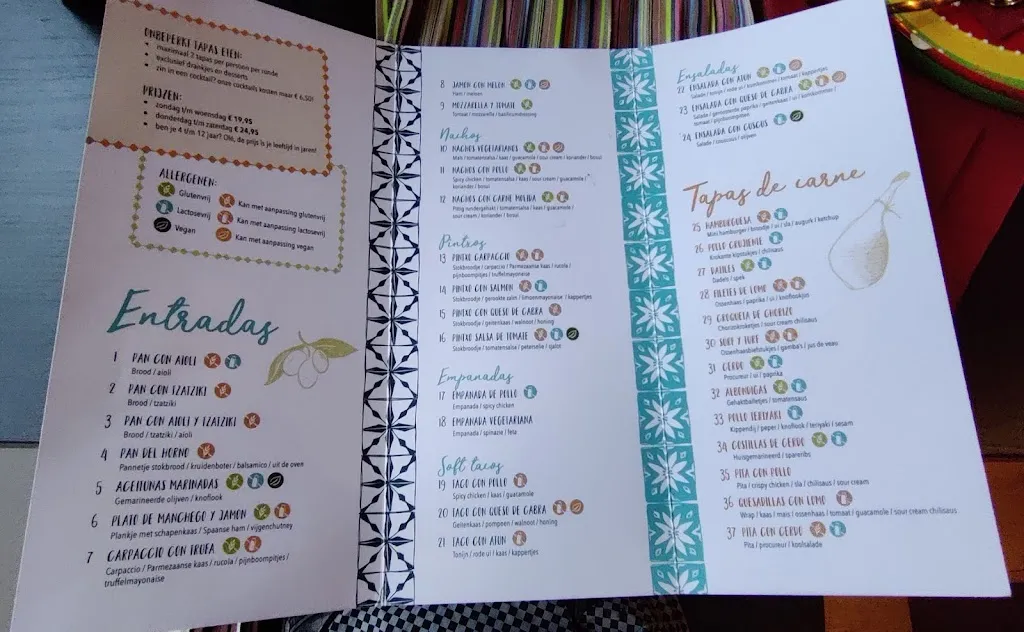 ONBEPERKT TAPAS ETEN:
• maximaal 2 tapas per persoon per ronde
• exclusief drankjes en desserts
• zin in een cocktail? onze cocktails kosten maar € 6,50!
PRIJZEN:
• zondag t/m woensdag € 19,95
• donderdag t/m zaterdag € 24,95
• ben je 4 t/m 12 jaar? Olé, de prijs is je leeftijd in jaren!
ALLERGENEN:
Glutenvrij
Kan met aanpassing glutenvrij
Lactosevrij
Kan met aanpassing lactosevrij
Vegan
Kan met aanpassing vegan
Entradas
1 PAN CON AIOLI
Brood / aioli
2 PAN CON TZATZIKI
Brood / tzatziki
3 PAN CON AIOLI Y TZATZIKI
Brood / tzatziki / aioli
4 PAN DEL HORNO
Pannetje stokbrood / kruidenboter / balsamico / uit de oven
5 ACEITUNAS MARINADAS
Gemarineerde olijven / knoflook
6 PLATO DE MANCHEGO Y JAMON
Plankje met schapenkaas / Spaanse ham / vijgenchutney
7 CARPACCIO CON TRUFA
Carpaccio / Parmezaanse kaas / rucola / pijnboompitjes /
truffelmayonaise
8 JAMON CON MELON
Ham / meloen
9 MOZZARELLA Y TOMATE
Tomaat / mozarella / basilicumdressing
Nachos
10 NACHOS VEGETARIANOS
Mais / tomatensalsa / kaas / guacamole / sour cream / koriander / bosui
11 NACHOS CON POLLO
Spicy chicken / tomatensalsa / kaas / sour cream / guacamole /
koriander / bosui
12 NACHOS CON CARNE MOLIDA
Pittig rundergehakt / tomatensalsa / kaas / guacamole /
sour cream / koriander / bosui
Pintxos
13 PINTXO CARPACCIO
Stokbroodje / carpaccio / Parmezaanse kaas / rucola /
pijnboompitjes / truffelmayonaise
14 PINTXO CON SALMON
Stokbroodje / gerookte zalm / limoenmayonaise / kappertjes
15 PINTXO CON QUESO DE CABRA
Stokbroodje / geitenkaas / walnoot / honing
16 PINTXO SALSA DE TOMATE
Stokbroodje / tomatensalsa / peterselie / sjalot
Empanadas
17 EMPANADA DE POLLO
Empanada / spicy chicken
18 EMPANADA VEGETARIANA
Empanada / spinazie / feta
Soft tacos
19 TACO CON POLLO
Spicy chicken / kaas / guacamole
20 TACO CON QUESO DE CABRA
Geitenkaas / pompoen / walnoot / honing
21 TACO CON ATUN
Tonijn / rode ui / kaas / kappertjes
Ensaladas
22 ENSALADA CON ATUN
Salade / tonijn / rode ui / komkommer / tomaat / kappertjes
23 ENSALADA CON QUESO DE CABRA
Salade / geroosterde paprika / geitenkaas / ui / komkommer /
tomaat / pijnboompitten
24 ENSALADA CON CUSCUS
Salade / couscous / olijven
Tapas de carne
25 HAMBURGUESA
Mini hamburger / broodje / ui / sla / augurk / ketchup
26 POLLO CRUJIENTE
Krokante kipstukjes / chilisaus
27 DATILES
Dadels / spek
28 FILETES DE LOMO
Ossenhaas / paprika / ui / knoflooksaus
29 CROQUETA DE CHORIZO
Chorizokroketjes / sour cream chilisaus
30 SURF Y TURF
Ossenhaasbiefstukjes / gamba's / jus de veau
31 CERDO
Procureur / ui / paprika
32 ALBONDIGAS
Gehaktballetjes / tomatensaus
33 POLLO TERIYAKI
Kippendij / peper / knoflook / teriyaki / sesam
34 COSTILLAS DE CERDO
Huisgemarineerd / spareribs
35 PITA CON POLLO
Pita / crispy chicken / sla / chilisaus / sour cream
36 QUESADILLAS CON LOMO
Wrap / kaas / mais / ossenhaas / tomaat / guacamole / sour cream chilisaus
37 PITA CON CERDO
Pita / procureur / koolsalade